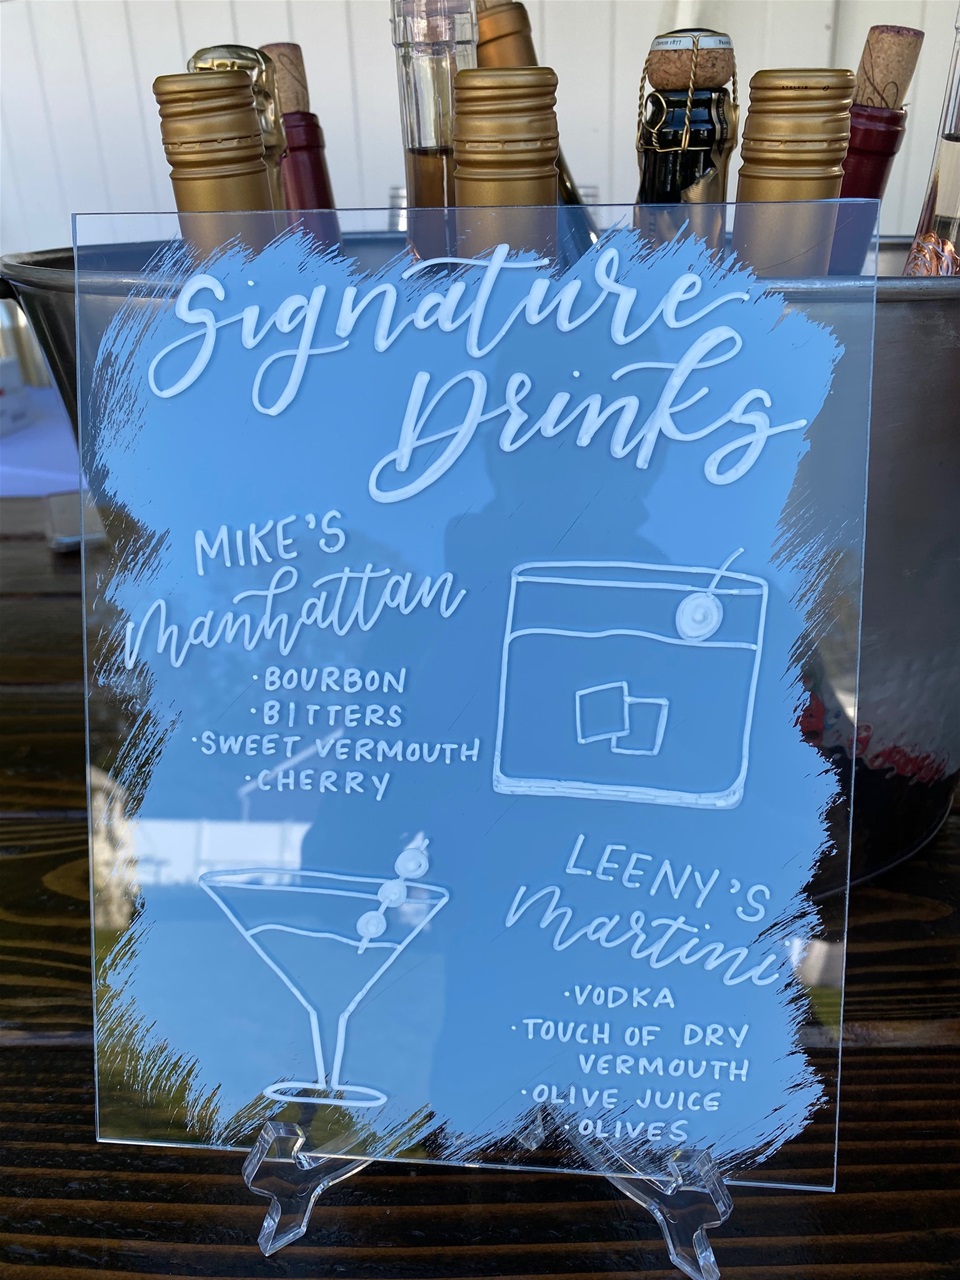 Signature
Drinks
MIKE'S
Manhattan
·BOURBON
·BITTERS
·SWEET VERMOUTH
·CHERRY
LEENY'S
Martini
·VODKA
·TOUCH OF DRY
VERMOUTH
·OLIVE JUICE
·OLIVES